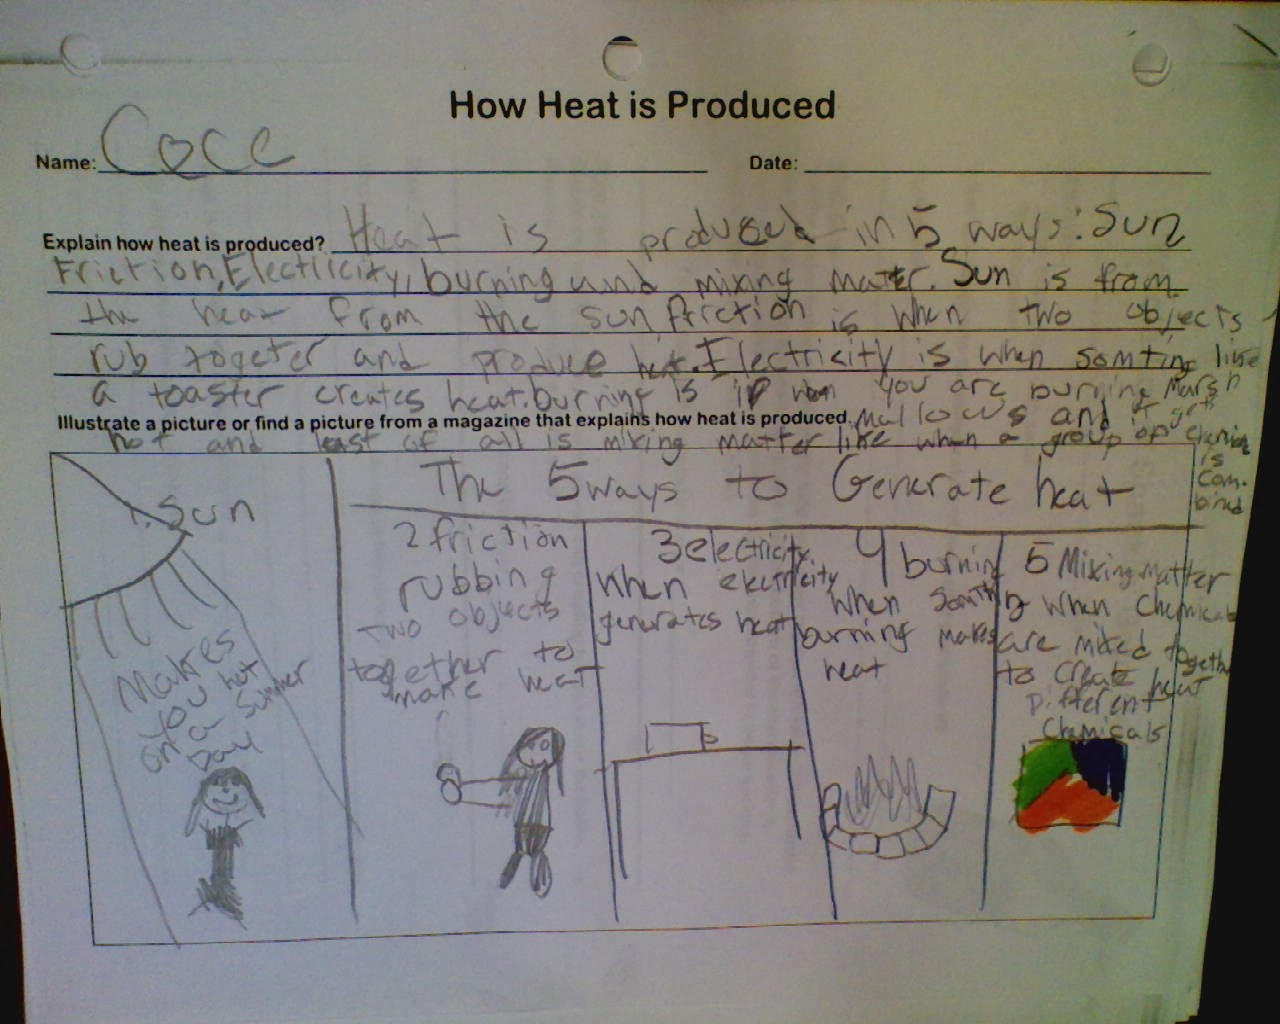 How Heat is Produced
Name: Coce Date:
Explain how heat is produced? Heat is produced in 5 ways: Sun
Friction, Electricity, burning and mixing matter. Sun is from
the heat from the sun friction is when two objects
rub togeter and produce heat. Electricity is when somting like
a toaster creates heat. burning is when you are burning Marsh
Illustrate a picture or find a picture from a magazine that explains how heat is produced. mallows and it gets
hot and least of all is mixing matter like when a group of
is
com-
bined
The 5 ways to Generate heat
1. Sun
Makes
you hot
on a Summer
Day
2 friction
rubbing
two objects
together to
make heat
3 electricity
when electricity
generates heat
4 burning
when
burning makes
heat
5 Mixing matter
when chemicals
are mixed together
to create heat
Different
Chemicals